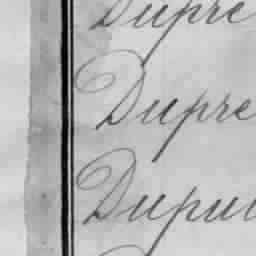 Dupre
Dupre
Dupui